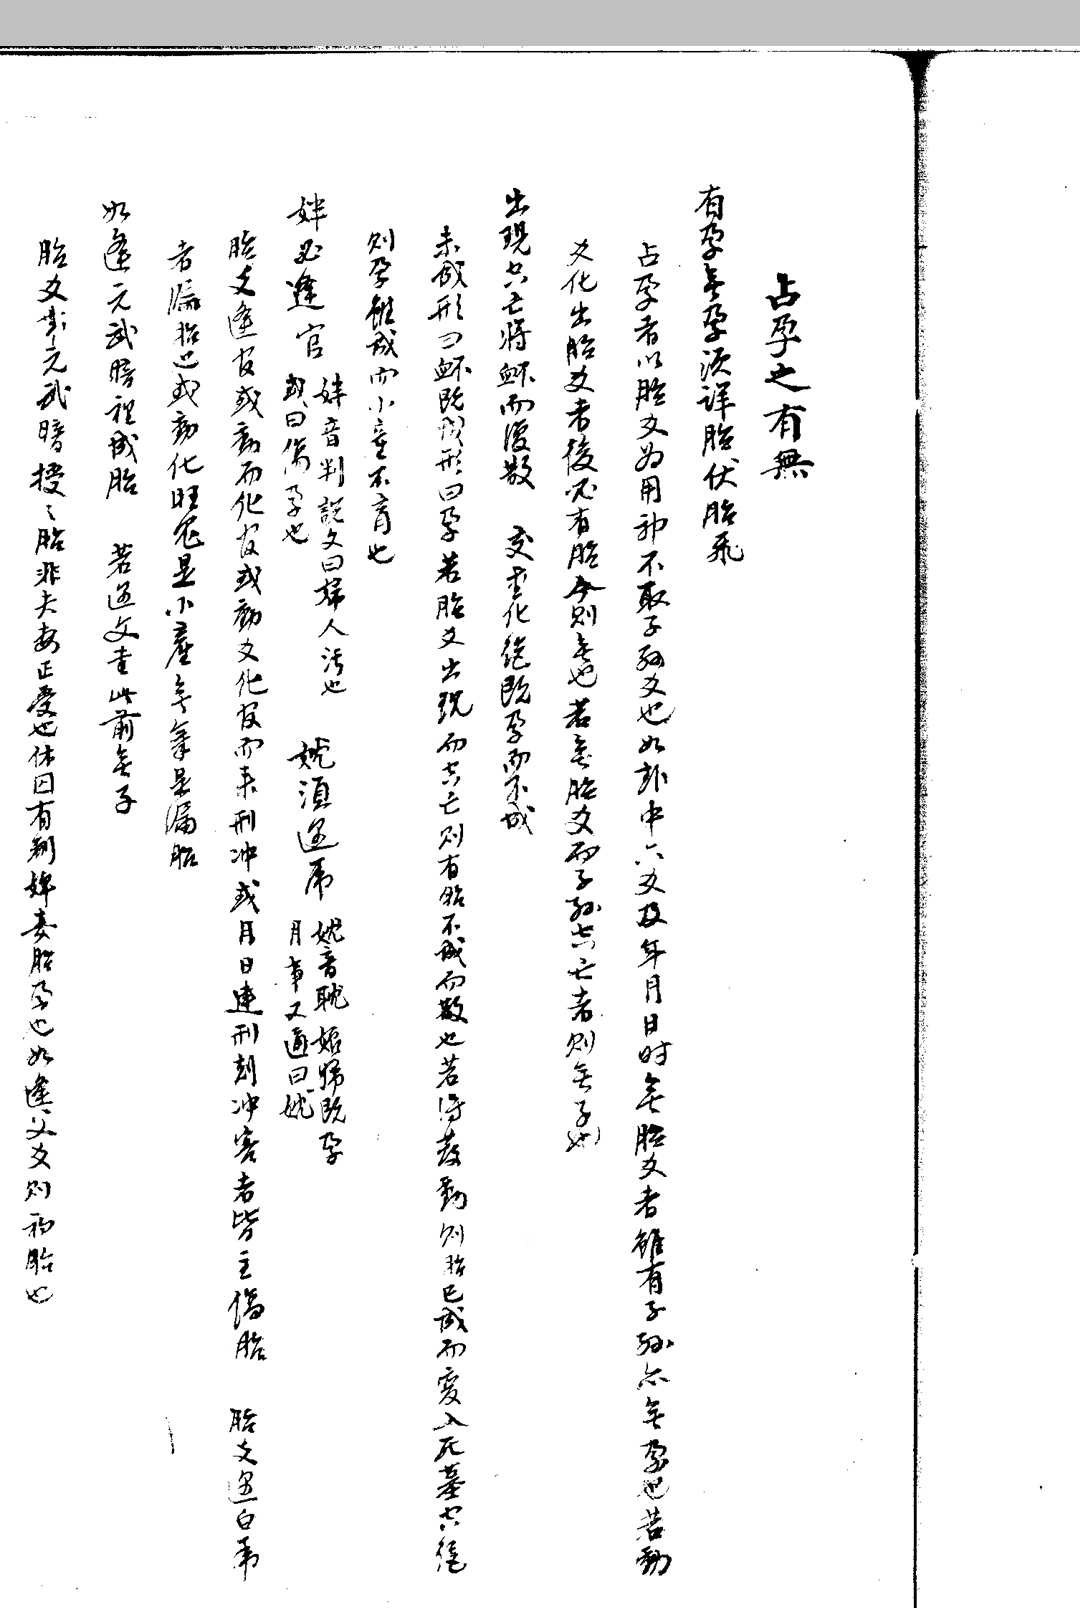 占孕之有無
有孕無孕須詳胎伏胎飛
占孕者以胎爻为用神不取子孫爻也如卦中六爻及年月日时無胎爻者雖有子孫亦無孕也若動
爻化出胎爻者後必有胎今則無也若無胎爻而子孫空亡者則無子也
出現空亡将衃而復散 交重化絕既孕而不成
未成形曰衃既成形曰孕若胎爻出現而空亡则有胎不成而散也若得發動则胎已成而变入死墓空絕
则孕雖成而小産不育也
姅必逢官 姅音判説文曰婦人污也
或曰傷孕也
㚲須遇虎 㚲音耽妊婦既孕
月事又通曰㚲
胎爻逢官或動而化官或動爻化官而来刑冲或月日建刑剋冲害者皆主傷胎 胎爻遇白虎
者漏胎也或動化旺鬼是小産無氣是漏胎
如逢元武暗裡成胎 若遇文書此前無子
胎爻帶元武暗授之胎非夫妻正受也休囚有制婢妾胎孕也如逢父爻则初胎也